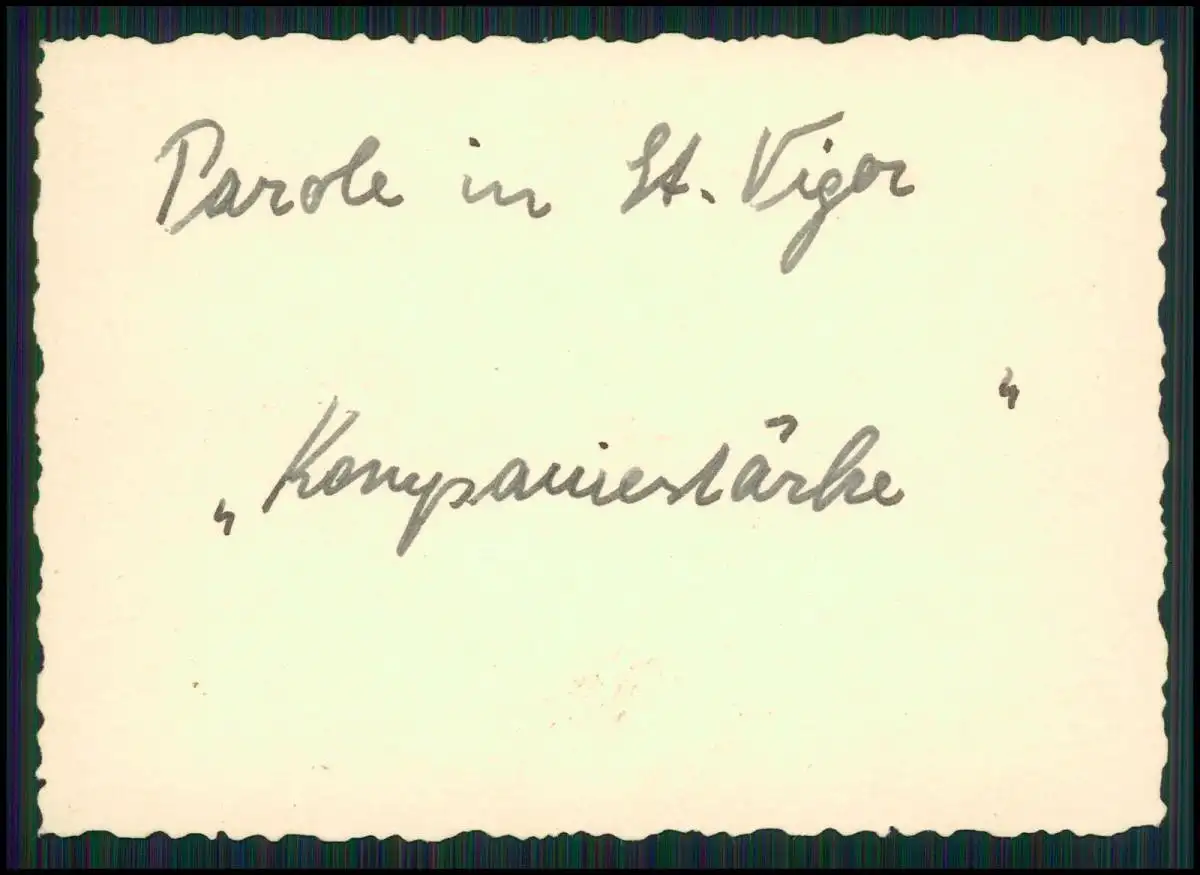 Parole in St. Vigor
„Kompaniestärke“